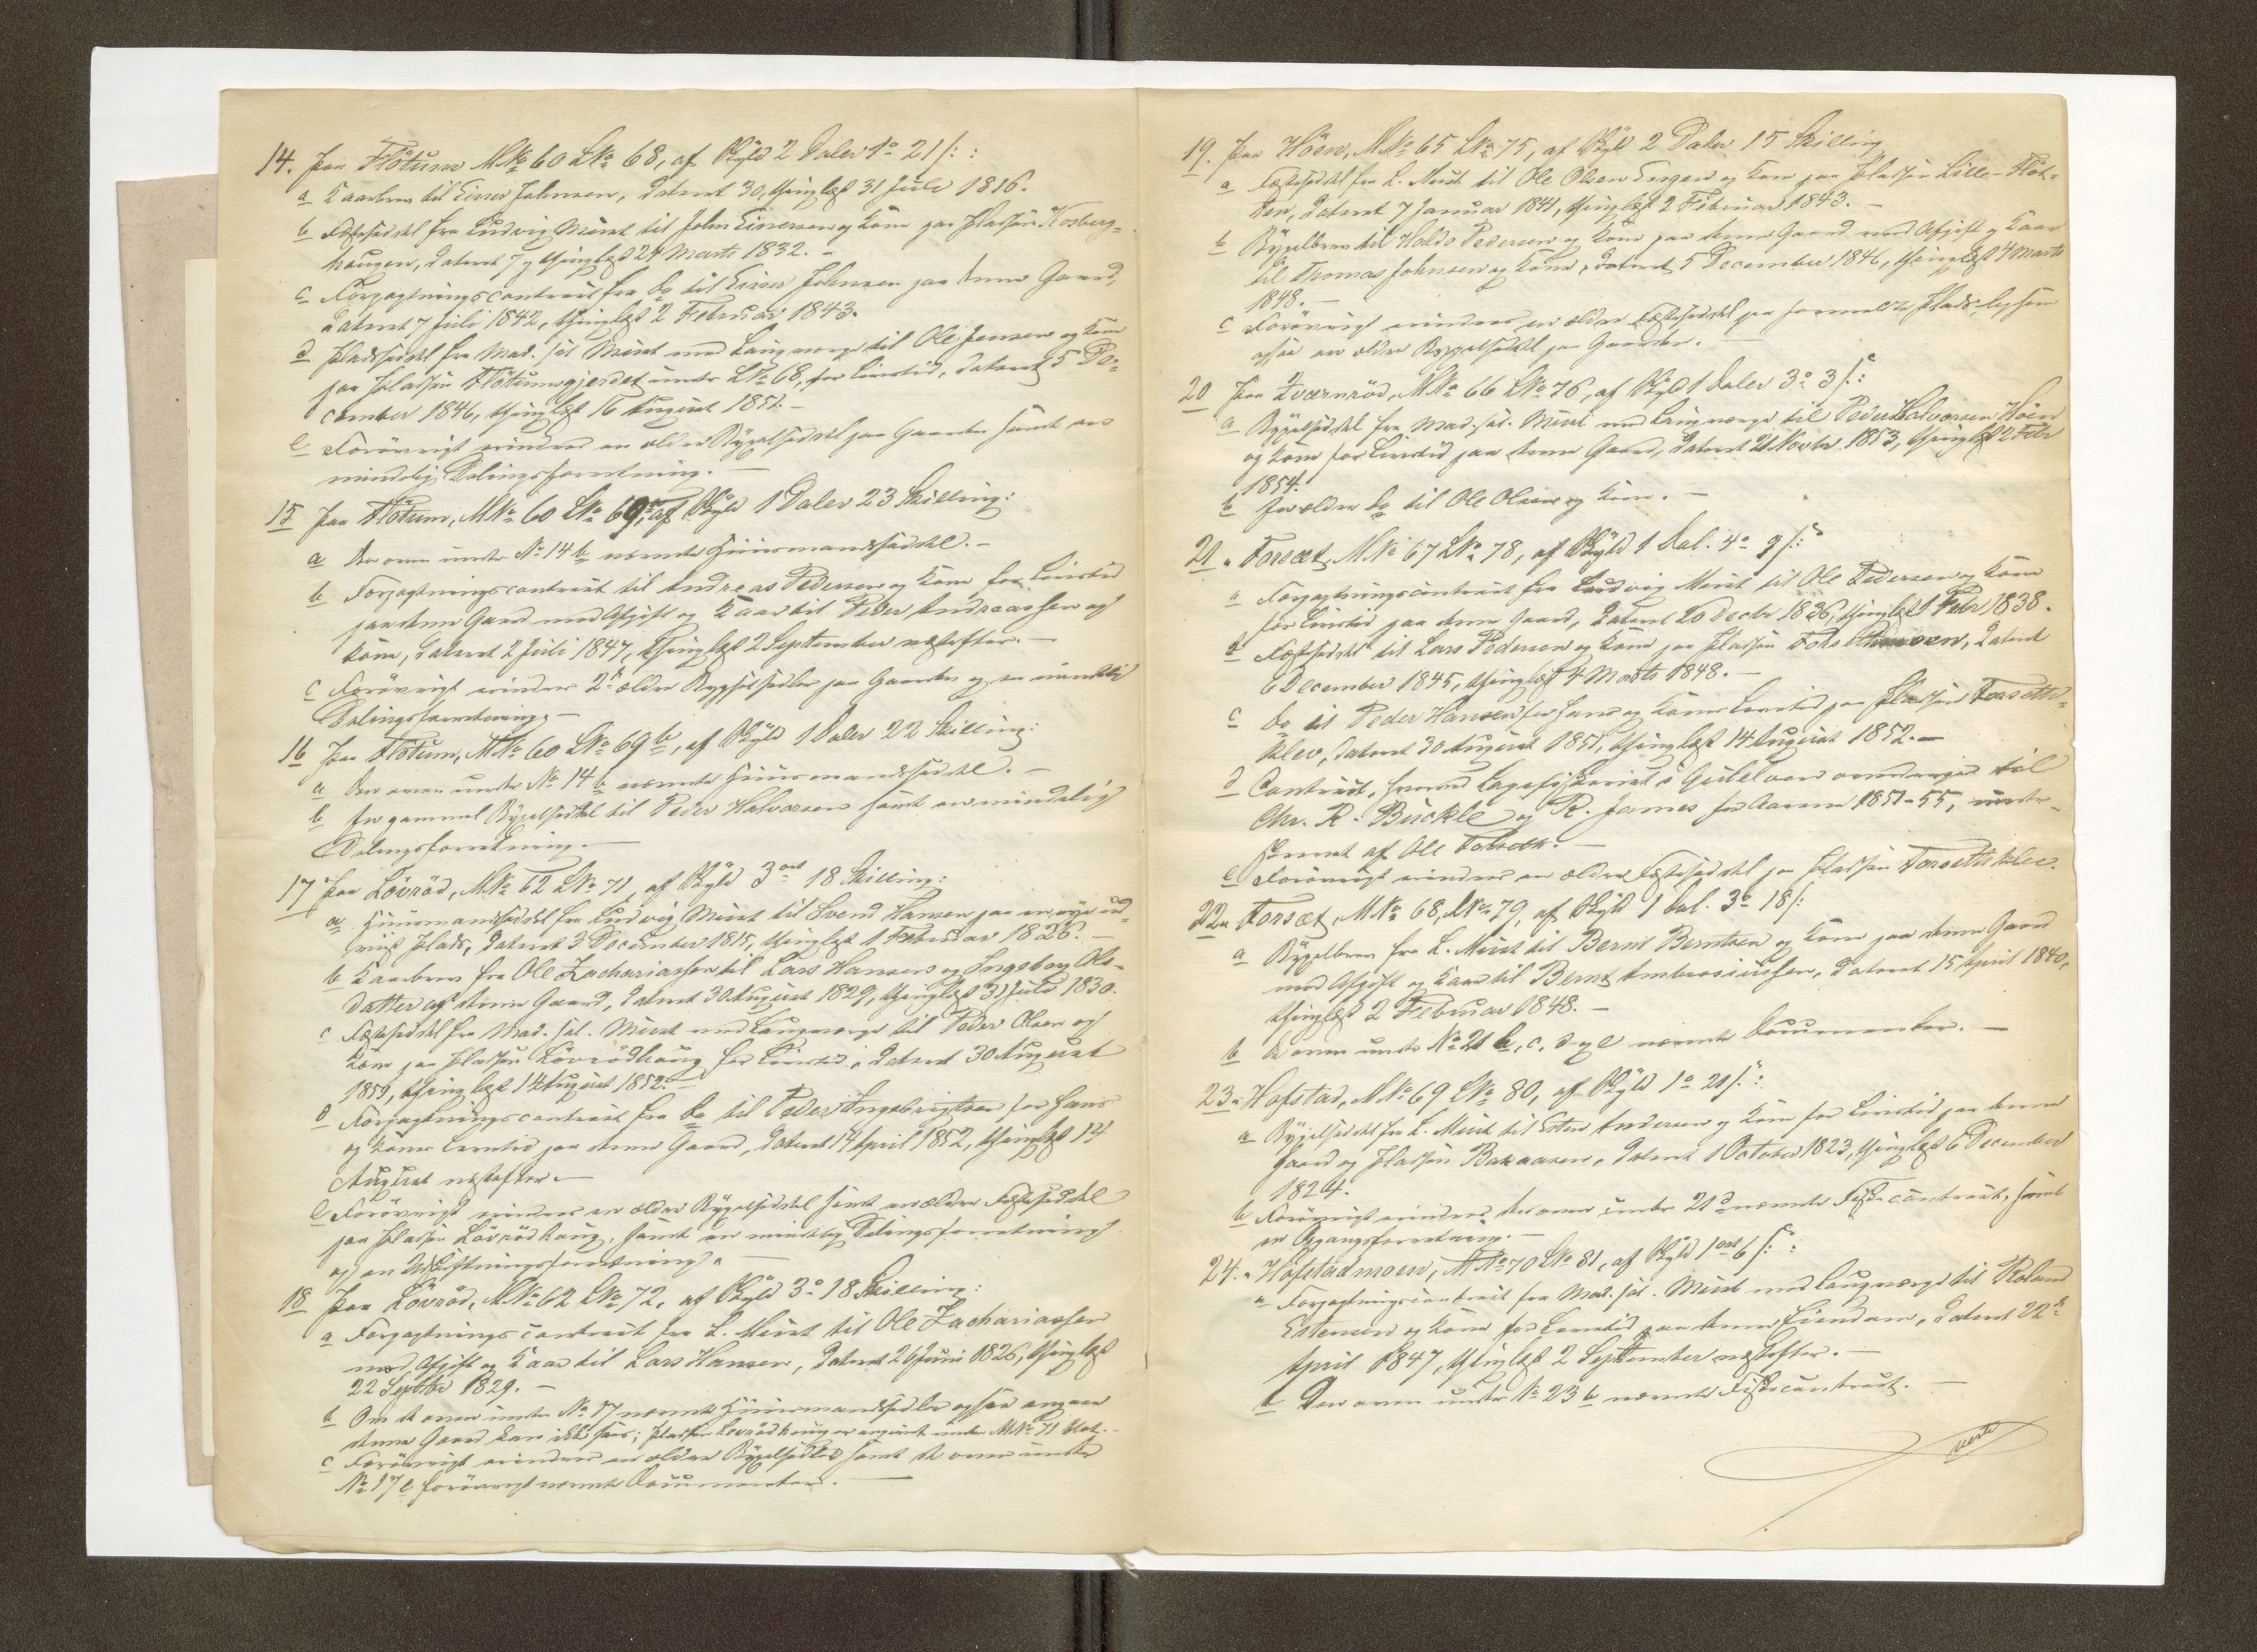 14. Paa Flötum M№ 60 L№ 68, af Skyld 2 Daler 1o 21 s:
a Kaarbrev til Einer Johnsen, dateret 30, thinglæst 31 Juli 1816.
b Fæsteseddel fra Ludvig Must til John Einersen og Kone paa Pladsen Kosberg-
haugen, dateret 7 og thinglæst 24 Marts 1832. –
c Forpagtningscontract fra do til Einer Johnsen paa denne Gaard,
dateret 7 Juli 1842, thinglæst 2 Februar 1843.
d Pladsseddel fra Mad. sal. Must med Laugværge til Ole Jensen og Kone
paa Pladsen Flötumsgjerdet under L№ 68, for Livstid, dateret 5 De-
cember 1846, thinglæst 16 August 1851. –
e Forövrigt erindres en ældre Bygselseddel paa Gaarden samt en
mindelig Delingsforretning. –
15 Paa Flötum, M№ 60 L№ 69a, af Skyld 1 Daler 23 Skilling:
a Den oven under № 14 b nævnte Huusmandsseddel. –
b Forpagtningscontract til Andreas Pedersen og Kone for Livstid
paa denne Gaard med Afgift og Kaar til Peder Andreassen og
Kone, dateret 2 Juli 1847, thinglæst 2 September næstefter. –
c Forövrigt erindres 2de ældre Bygselsedler paa Gaarden og en mindelig
Delingsforretning. –
16 Paa Flötum, M№ 60 L№ 69b, af Skyld 1 Daler 22 Skilling:
a Den oven under № 14 b nævnte Huusmandsseddel. –
b En gammel Bygselseddel til Peder Halvorsen samt en mindelig
Delingsforretning. –
17 Paa Lövröd, M№ 62 L№ 71, af Skyld 3 ort 18 Skilling:
a Huusmandsseddel fra Ludvig Must til Svend Hansen paa en nye ud-
viist Plads, dateret 3 December 1815, thinglæst 1 Februar 1826. –
b Kaarbrev fra Ole Zachariassen til Lars Hansen og Ingeborg Ols-
datter af denne Gaard, dateret 30 August 1829, thinglæst 31 Juli 1830.
c Fæsteseddel fra Mad. sal. Must med Laugværge til Peder Olsen og
Kone paa Pladsen Lövrödhaug for Livstid, dateret 30 August
1851, thinglæst 14 August 1852. –
d Forpagtningscontract fra do til Peder Ingebrigtsen for hans
og Kones Levetid paa denne Gaard, dateret 14 April 1852, thinglæst 14
August næstefter. –
e Forövrigt erindres en ældre Bygselseddel samt en ældre Fæsteseddel
paa Pladsen Lövrödhaug, samt en mindelig Delingsforretning
og en Udskiftningsforretning. –
18 Paa Lövröd, M№ 62 L№ 72, af Skyld 3o 18 Skilling:
a Forpagtningscontract fra L. Must til Ole Zachariassen
med Afgift og Kaar til Lars Hansen, dateret 26 Juni 1826, thinglæst
22 Septbr 1829. –
b Om de oven under № 17 nævnte Huusmandssedler ogsaa angaae
denne Gaard kan ikke sees; Pladsen Lövrödhaug er angivet under L№ 71
c Forövrigt erindres en ældre Bygselseddel samt de oven under
№ 17 e forövrigt nævnte Documenter. –
19. Paa Höen, M№ 65 L№ 75, af Skyld 2 Daler 15 Skilling
a Fæsteseddel fra L. Must til Ole Olsen Engen og Kone paa Pladsen Lille-Flöt-
ten, dateret 7 Januar 1841, thinglæst 2 Februar 1843. –
b Bygselbrev til Haldo Pedersen og Kone paa denne Gaard med Afgift og Kaar
til Thomas Johnsen og Kone, dateret 5 December 1846, thinglæst 4 Marts
1848. –
c Forövrigt erindres en ældre Fæsteseddel paa formeldte Plads ligesom
ogsaa en ældre Bygselseddel paa Gaarden. –
20 Paa Kværnröd, M№ 66 L№ 76, af Skyld 1 Daler 3o 3 s:
a Bygselseddel fra Mad. sal. Must med Laugværge til Peder Halvorsen Höen
og Kone for Livstid paa denne Gaard, dateret 21 Novbr. 1853, thinglæst 2 Febr
1854.
b En ældre do til Ole Olsen og Kone. –
21 " Forsæt, M№ 67 L№ 78, af Skyld 1 Dal. 4o 9 s:
a Forpagtningscontract fra Ludvig Must til Ole Pedersen og Kone
for Livstid paa denne Gaard, dateret 20 Decbr 1836, thinglæst 1 Febr 1838.
b Fæsteseddel til Lars Pedersen og Kone paa Pladsen, dateret
6 December 1845, thinglæst 4 Marts 1848. –
c do til Peder Hansen for hans og Kones Levetid paa Pladsen Forsetts-
klev, dateret 30 August 1851, thinglæst 14 August 1852. –
d Contract, hvorved Laxefiskeriet i Guulelven overdrages til
Chr. R. Buckle og R. James for Aarene 1851-55, under-
skrevet af Ole Forseth. –
e Forövrigt erindres en ældre Fæsteseddel paa Pladsen Forsettsklev.
22 " Forsæt, M№ 68, L№ 79, af Skyld 1 Dal. 3o 18 s:
a Bygselbrev fra L. Must til Bernt Berntsen og Kone paa denne Gaard
med Afgift og Kaar til Bernt Ambrosiussen, dateret 15 April 1840,
thinglæst 2 Februar 1848. –
b De oven under № 21 b, c, d og e nævnte Documenter. –
23 " Hofstad, M№ 69 L№ 80, af Skyld 1o 21 s:
a Bygselseddel fra L. Must til Esten Andersen og Kone for Livstid paa denne
Gaard og Pladsen Bakaasen, dateret 1 October 1823, thinglæst 6 December
1824.
b Forövrigt erindres den oven under 21 d nævnte Fiskecontract, samt
en Opgangsforretning. –
24. " Hofstadmoen, M№ 70 L№ 81, af Skyld 1 ort 6 s:
a Forpagtningscontract fra Mad. sal. Must med Laugværge til Roland
Estensen og Kone for Levetid paa denne Eiendom, dateret 22de
April 1847, thinglæst 2 September næstefter. –
b Den oven under № 23 b nævnte Fiskecontract. –
verte